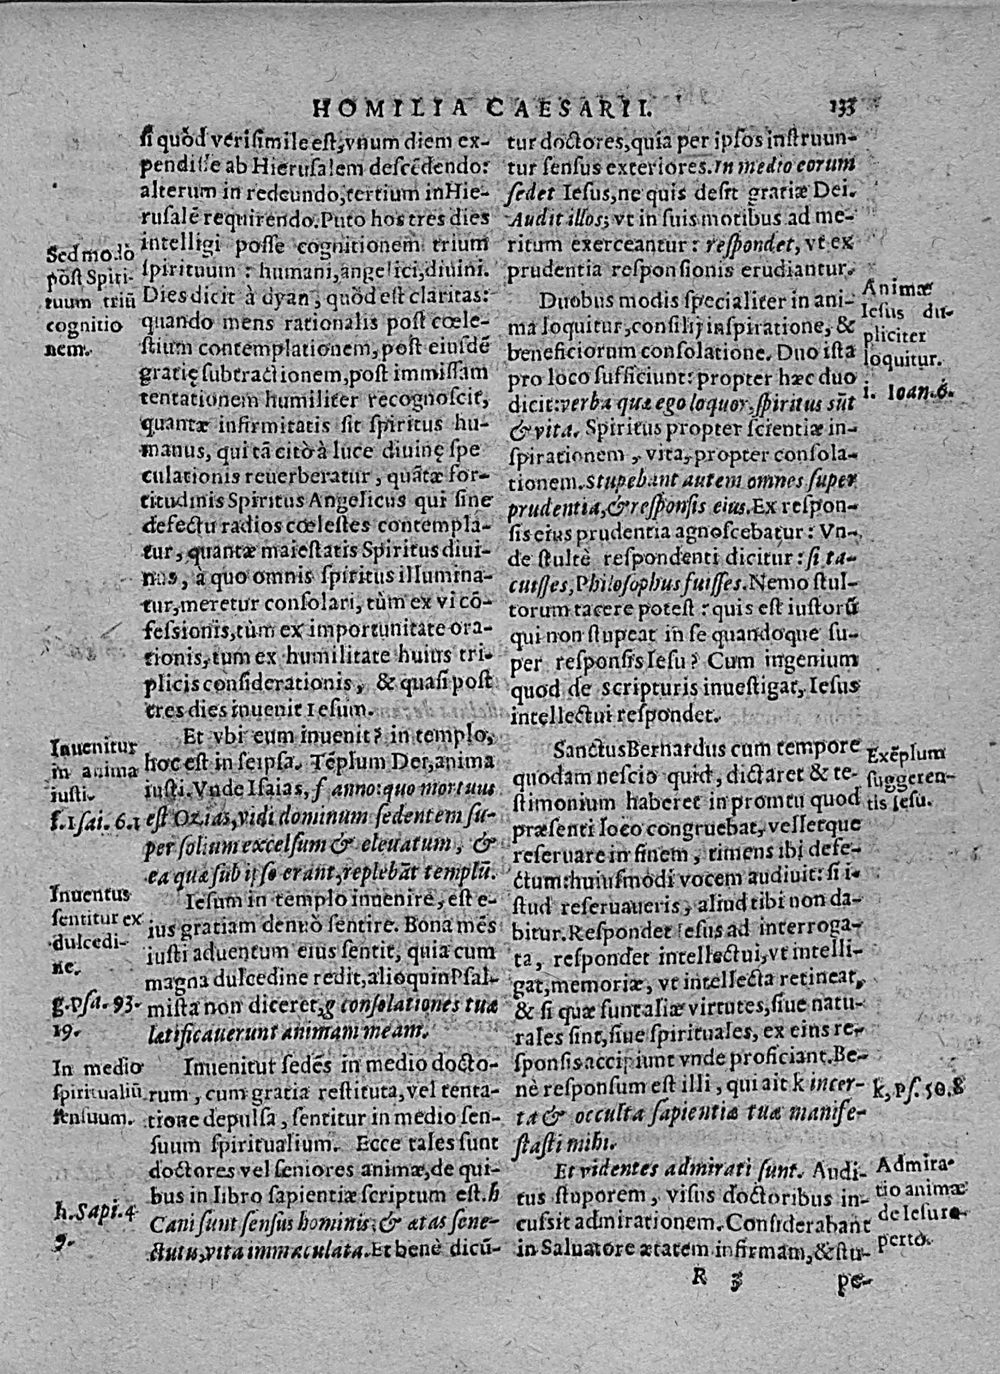 HOMILIA CAESARII. 133
si quòd verisimile est, vnum diem ex-
pendisse ab Hierusalem descēdendo:
alterum in redeundo, tertium in Hie-
rusalē requirendo. Puto hos tres dies
intelligi posse cognitionem trium
spirituum: humani, angelici, diuini.
Dies dicit à dyan, quòd est claritas:
quando mens rationalis post cœle-
stium contemplationem, post eiusdē
gratię subtractionem, post immissam
tentationem humiliter recognoscit,
quantæ infirmitatis sit spiritus hu-
manus, qui tā citò à luce diuinę spe
culationis reuerberatur, quātæ for-
titudinis Spiritus Angelicus qui sine
defectu radios cœlestes contempla-
tur, quantæ maiestatis Spiritus diui-
nus, à quo omnis spiritus illumina-
tur, meretur consolari, tùm ex vi cō-
fessionis, tùm ex importunitate ora-
tionis, tum ex humilitate huius tri-
plicis considerationis, & quasi post
tres dies inuenit Iesum.
Et vbi eum inuenit? in templo,
hoc est in seipsa. Tēplum Dei, anima
iusti. Vnde Isaias, f anno: quo mortuus
est Ozias, vidi dominum sedentem su-
per solium excelsum & eleuatum, &
ea quæ sub ipso erant, replebāt templū.
Iesum in templo inuenire, est e-
ius gratiam denuò sentire. Bona mēs
iusti aduentum eius sentit, quia cum
magna dulcedine redit, alioquin Psal-
mista non diceret, g consolationes tuæ
lætificauerunt animam meam.
Inuenitur sedēs in medio docto-
rum, cum gratia restituta, vel tenta-
tione depulsa, sentitur in medio sen-
suum spiritualium. Ecce tales sunt
doctores vel seniores animæ, de qui-
bus in libro sapientiæ scriptum est. h
Cani sunt sensus hominis; & ætas sene-
ctutis, vita immaculata. Et benè dicū-
Sed modò
pòst Spiri-
tuum triū
cognitio
nem.
Inuenitur
in anima
iusti.
f. Isai. 6. 1
Inuentus
sentitur ex
dulcedi-
ne.
g. Psa. 93.
19.
In medio
spiritualiū
sensuum.
h. Sapi. 4.
9.
tur doctores, quia per ipsos instruun-
tur sensus exteriores. In medio eorum
sedet Iesus, ne quis desit gratiæ Dei.
Audit illos; vt in suis motibus ad me-
ritum exerceantur: respondet, vt ex
prudentia responsionis erudiantur.
Duobus modis specialiter in ani-
ma loquitur, consilij inspiratione, &
beneficiorum consolatione. Duo ista
pro loco sufficiunt: propter hæc duo
dicit: verba quæ ego loquor, spiritus sūt
& vita. Spiritus propter scientiæ in-
spirationem, vita, propter consola-
tionem. Stupebant autem omnes super
prudentia, & responsis eius. Ex respon-
sis eius prudentia agnoscebatur: Vn-
de stultè respondenti dicitur: si ta-
cuisses, Philosophus fuisses. Nemo stul-
torum tacere potest: quis est iustorū
qui non stupeat in se quandoque su-
per responsis Iesu? Cum ingenium
quod de scripturis inuestigat, Iesus
intellectui respondet.
Sanctus Bernardus cum tempore
quodam nescio quid, dictaret & te-
stimonium haberet in promtu quod
præsenti loco congruebat, velletque
reseruare in finem, timens ibi defe-
ctum: huiusmodi vocem audiuit: si i-
stud reseruaueris, aliud tibi non da-
bitur. Respondet Iesus ad interroga-
ta, respondet intellectui, vt intelli-
gat, memoriæ, vt intellecta retineat,
& si quæ sunt aliæ virtutes, siue natu-
rales sint, siue spirituales, ex eius re-
sponsis accipiunt vnde proficiant. Be-
nè responsum est illi, qui ait k incer-
ta & occulta sapientiæ tuæ manife-
stasti mihi.
Et videntes admirati sunt. Audi-
tus stuporem, visus doctoribus in-
cussit admirationem. Considerabant
in Saluatore ætatem infirmam, & stu-
Animæ
Iesus du-
pliciter
loquitur.
i. Ioan. 6.
Exēplum
suggeren-
tis Iesu.
k, ps. 50. 8
Admira-
tio animæ
de Iesu re-
perto.
R 3 pe-